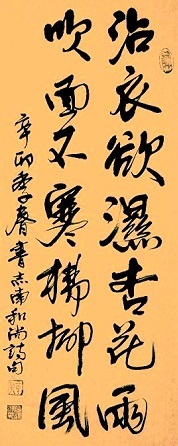 沾衣欲濕杏花雨
吹面不寒楊柳風
辛卯季春書志南和尚詩句